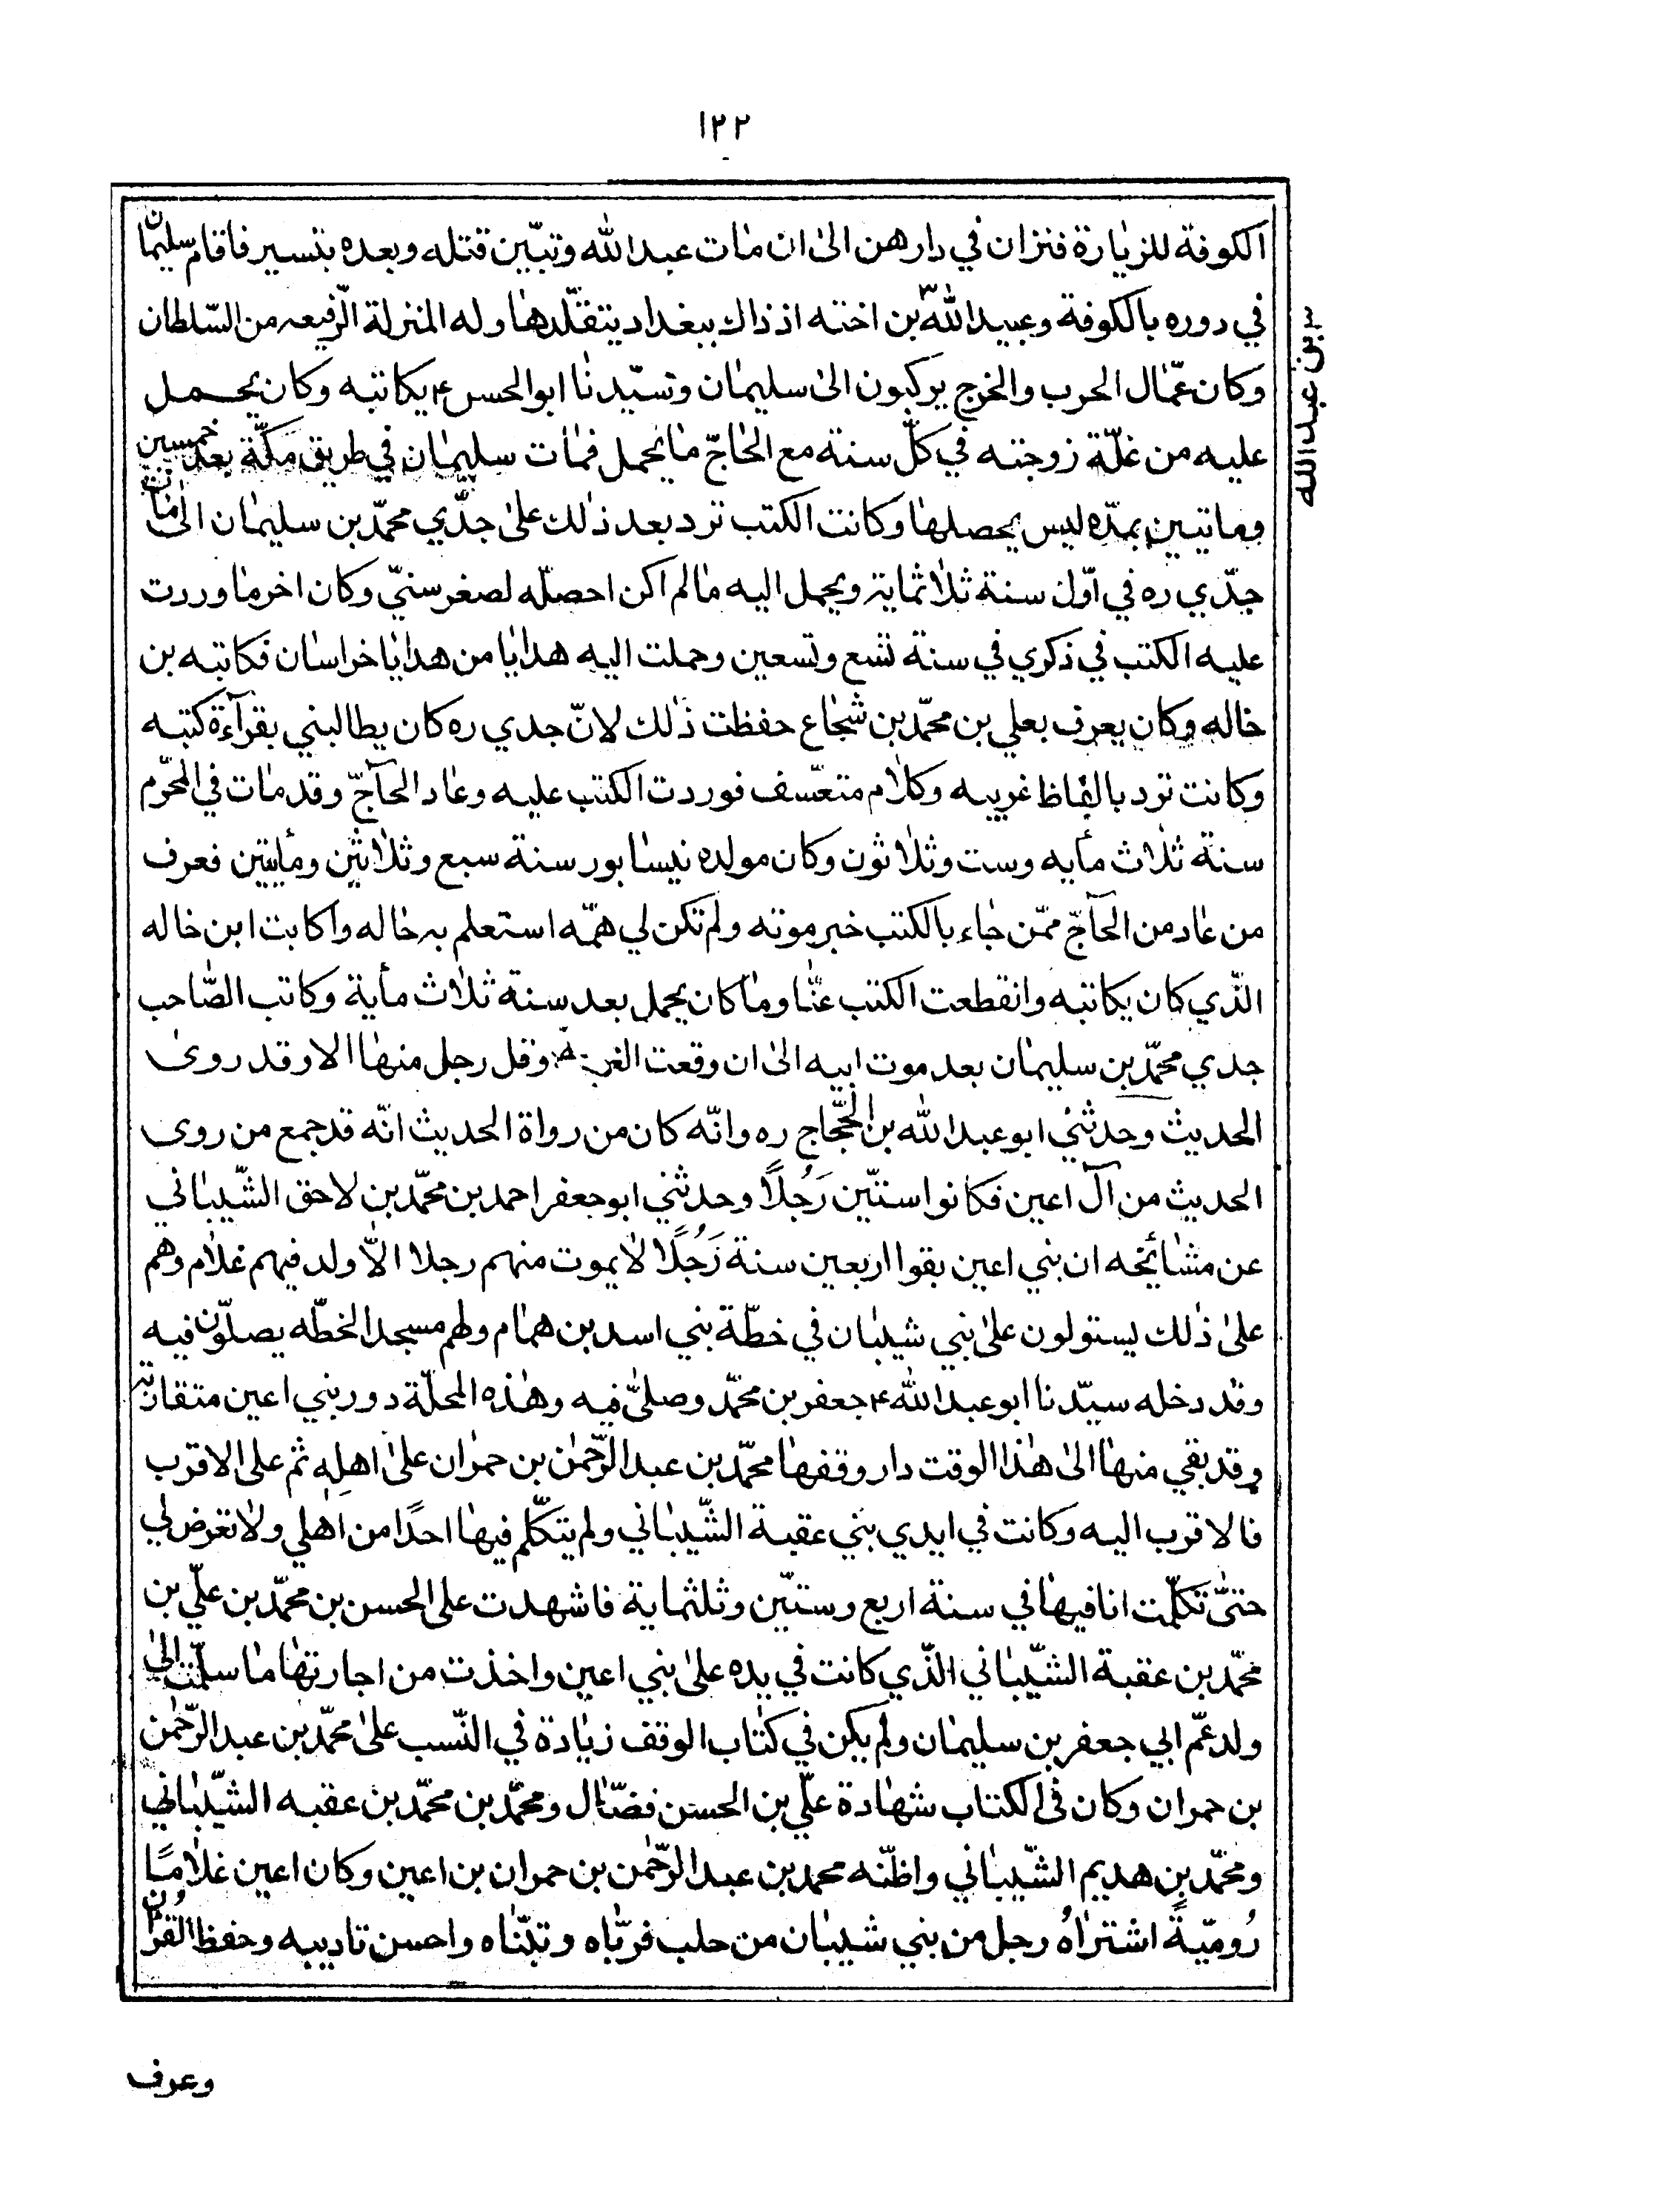 ١٢٢
الكوفة للزيارة فنزلن في دارهن الى ان مات عبد الله وتبّين قتله وبعده بتسير فاقام سليمان
في دوره بالكوفة وعبيد الله بن اخته اذ ذاك ببغداد يتقلّدها وله المنزلة الرّفيعه من السّلطان
وكان عمّال الحرب والخرج يركبون الى سليمان وسيّدنا ابوالحسن ع يكاتبه وكان يحمل
عليه من غلّة زوجته في كلّ سنة مع الحاجّ ما يحمل فمات سليمان في طريق مكّة بعد خمسين
وماتيين بمدّه ليس يحصلها وكانت الكتب ترد بعد ذلك على جدّي محمّد بن سليمان الى ان مات
جدّي ره في اوّل سنة ثلاثماية ويحمل اليه ما لم اكن احصلّه لصغر سنيّ وكان اخر ما وردت
عليه الكتب في ذكري في سنة تسع وتسعين وحملت اليه هدايا من هدايا خراسان فكاتبه بن
خاله وكان يعرف بعلي بن محمّد بن شجاع حفظت ذلك لانّ جدي ره كان يطالبني بقرآءة كتبه
وكانت ترد بالفاظ غريبه وكلام متعسّف فوردت الكتب عليه وعاد الحآجّ وقد مات في المحرّم
سنة ثلاث مأيه وست وثلاثون وكان مولده نيسابور سنة سبع وثلاثين ومأيتين فعرف
من عاد من الحآجّ ممّن جاء بالكتب خبر موته ولم تكن لي همّه استعلم به خاله واكاتب ابن خاله
الّذي كان يكاتبه وانقطعت الكتب عنّا وما كان يحمل بعد سنة ثلاث مأية وكاتب الصّاحب
جدي محمّد بن سليمان بعد موت ابيه الى ان وقعت الغربة وقل رجل منها الا وقد روى
الحديث وحدثني ابو عبد الله بن الحجّاج ره وانّه كان من رواة الحديث انّه قد جمع من روى
الحديث من آل اعين فكانوا ستّين رَجُلاً وحدثني ابو جعفر احمد بن محمّد بن لاحق الشّيباني
عن مشائخه ان بني اعين بقوا اربعين سنة رَجُلًا لا يموت منهم رجلا الّا ولد فيهم غلام وهم
على ذلك يستولون على بني شيبان في خطّة بني اسد بن همام ولهم مسجد الخطّه يصلّون فيه
وقد دخله سيّدنا ابو عبد الله ع جعفر بن محمّد وصلّى فيه وهذه المحلّة دور بني اعين متقاربة
وقد بقي منها الى هذا الوقت دار وقفها محمّد بن عبد الرّحمن بن حمران على اهلِهِ ثم على الاقرب
فالاقرب اليه وكانت في ايدي بني عقبة الشّيباني ولم يتكلّم فيها احدًا من اهلي ولا تعرض لي
حتّى تكلّمت انا فيها في سنة اربع وستّين وثلثماية فاشهدت على الحسن بن محمّد بن علّي بن
محمّد بن عقبة الشّيباني الّذي كانت في يده على بني اعين واخذت من اجارتها ما سلّمت الى
ولد عمّ ابي جعفر بن سليمان ولم يكن في كتاب الوقف زيادة في النّسب على محمّد بن عبد الرّحمن
بن حمران وكان في الكتاب شهادة علّي بن الحسن فضّال ومحمّد بن محمّد بن عقبه الشّيباني
ومحمّد بن هديم الشّيباني واظنّه محمد بن عبد الرّحمن بن حمران بن اعين وكان اعين غلامًا
رُوميّةً اشتراهُ رجل من بني شيبان من حلب فربّاه وتبنّاه واحسن تاديبه وحفظ القرآن
٣ بن عبد الله
وعرف